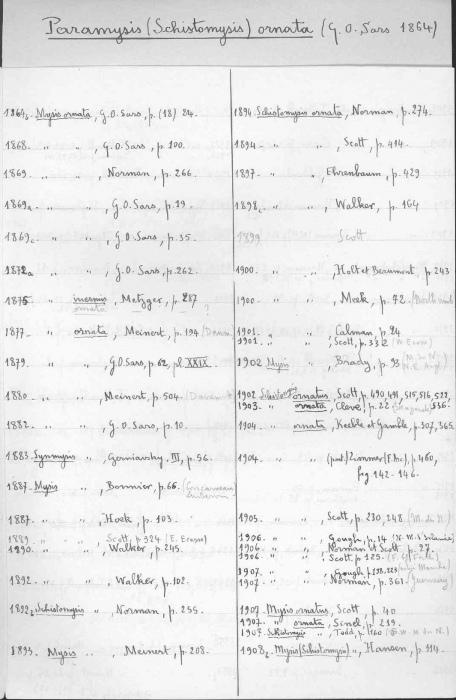 Paramysis (Schistomysis) ornata (G. O. Sars 1864)
1864. Mysis ornata, G.O. Sars, p. (18) 84.
1868. " " , G.O. Sars, p. 100.
1869. " " , Norman, p. 266.
1869a " " , G.O. Sars, p. 19.
1869. " " , G.O. Sars, p. 35.
1872a " " , G.O. Sars, p. 262.
1875 " inermis, Metzger, p. 287
ornata
1877. " ornata, Meinert, p. 194
1879. " " , G.O. Sars, p. 62, pl. XXIX.
1880 " " , Meinert, p. 504.
1882. " " , G.O. Sars, p. 10.
1883. Synmysis " , Czerniavsky, III, p. 56.
1887. Mysis " , Bonnier, p. 66. (Concarneau)
1887. " " , Hoek, p. 103.
1889. " " , Scott, p. 324
1890. " " , Walker, p. 245.
1892. " " , Walker, p. 102.
1892. Schistomysis " , Norman, p. 255.
1893. Mysis " , Meinert, p. 208.
1894. Schistomysis ornata, Norman, p. 274.
1894. " " , Scott, p. 414.
1897. " " , Ehrenbaum, p. 429
1898. " " , Walker, p. 164
1899 Scott
1900. " " , Holt et Beaumont, p. 243
1900. " " , Meek, p. 72.
1901. " " , Calman, p. 24
1901. " " , Scott, p. 332
1902 Mysis " , Brady, p. 93
1902 Schistomysis ornatus, Scott, p. 490, 491, 515, 516, 522,
1903. " ornata, Cleve, p. 22 536.
1904. " ornata, Keeble et Gamble, p. 307, 365.
1904. " " Zimmer p. 460,
fig 142-146.
1905. " " , Scott, p. 230, 248.
1906. " " , Gough, p. 14
1906. " " , Norman et Scott p. 27.
1906. " " , Scott, p. 125.
1907. " " , Gough
1907. " " , Norman, p. 361. (Guernsey)
1907. Mysis ornatus, Scott, p. 40
1907. " ornata, Sinel, p. 219.
1907. Schistomysis " , Todd,
1908. Mysis (Schistomysis) " , Hansen, p. 114.